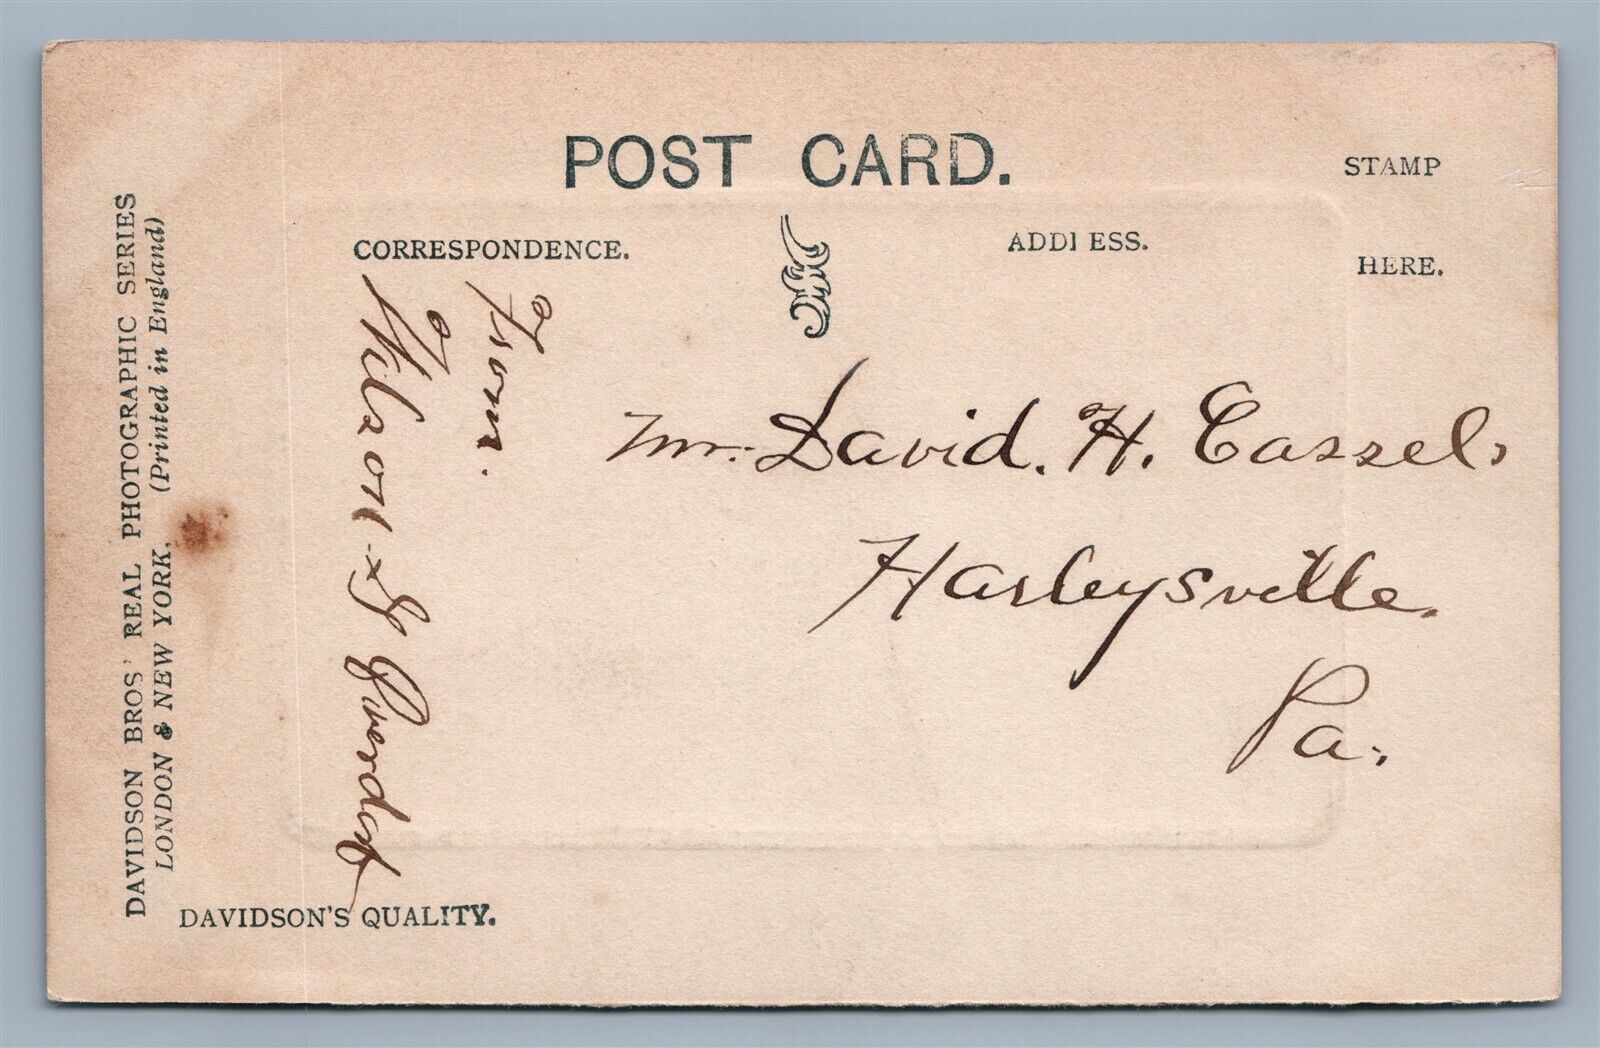 POST CARD.
STAMP
HERE.
CORRESPONDENCE.
ADDI ESS.
From.
Wilson S
Mr. David. H. Cassel,
Harleysville.
Pa.
DAVIDSON BROS' REAL PHOTOGRAPHIC SERIES
LONDON & NEW YORK. (Printed in England)
DAVIDSON'S QUALITY.